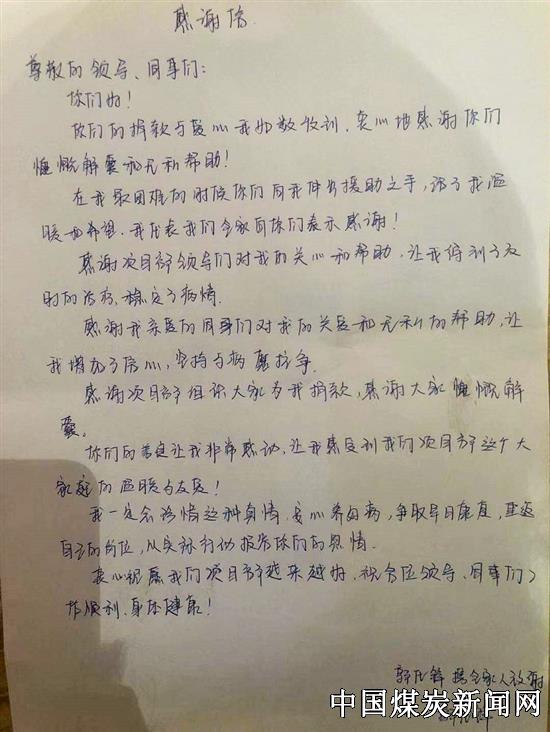 感谢信.
尊敬的领导、同事们:
你们好!
你们的捐款与爱心我如数收到,衷心地感谢你们
慷慨解囊和无私帮助!
在我最困难的时候你们向我伸出援助之手,给了我温
暖和希望.我代表我们全家向你们表示感谢!
感谢项目部领导们对我的关心和帮助,让我得到了及
时的治疗,稳定了病情.
感谢我亲爱的同事们对我的关爱和无私的帮助,让
我增加了信心,坚持与病魔抗争.
感谢项目部组织大家为我捐款,感谢大家慷慨解
囊。
你们的善意让我非常感动,让我感受到我们项目部这个大
家庭的温暖与友爱!
我一定会珍惜这种真情,安心养病,争取早日康复,重返
自己的岗位,以实际行动报答你们的恩情.
衷心祝愿我们项目部越来越好,祝各位领导、同事们
作顺利,身体健康!
携全家人敬谢
中国煤炭新闻网